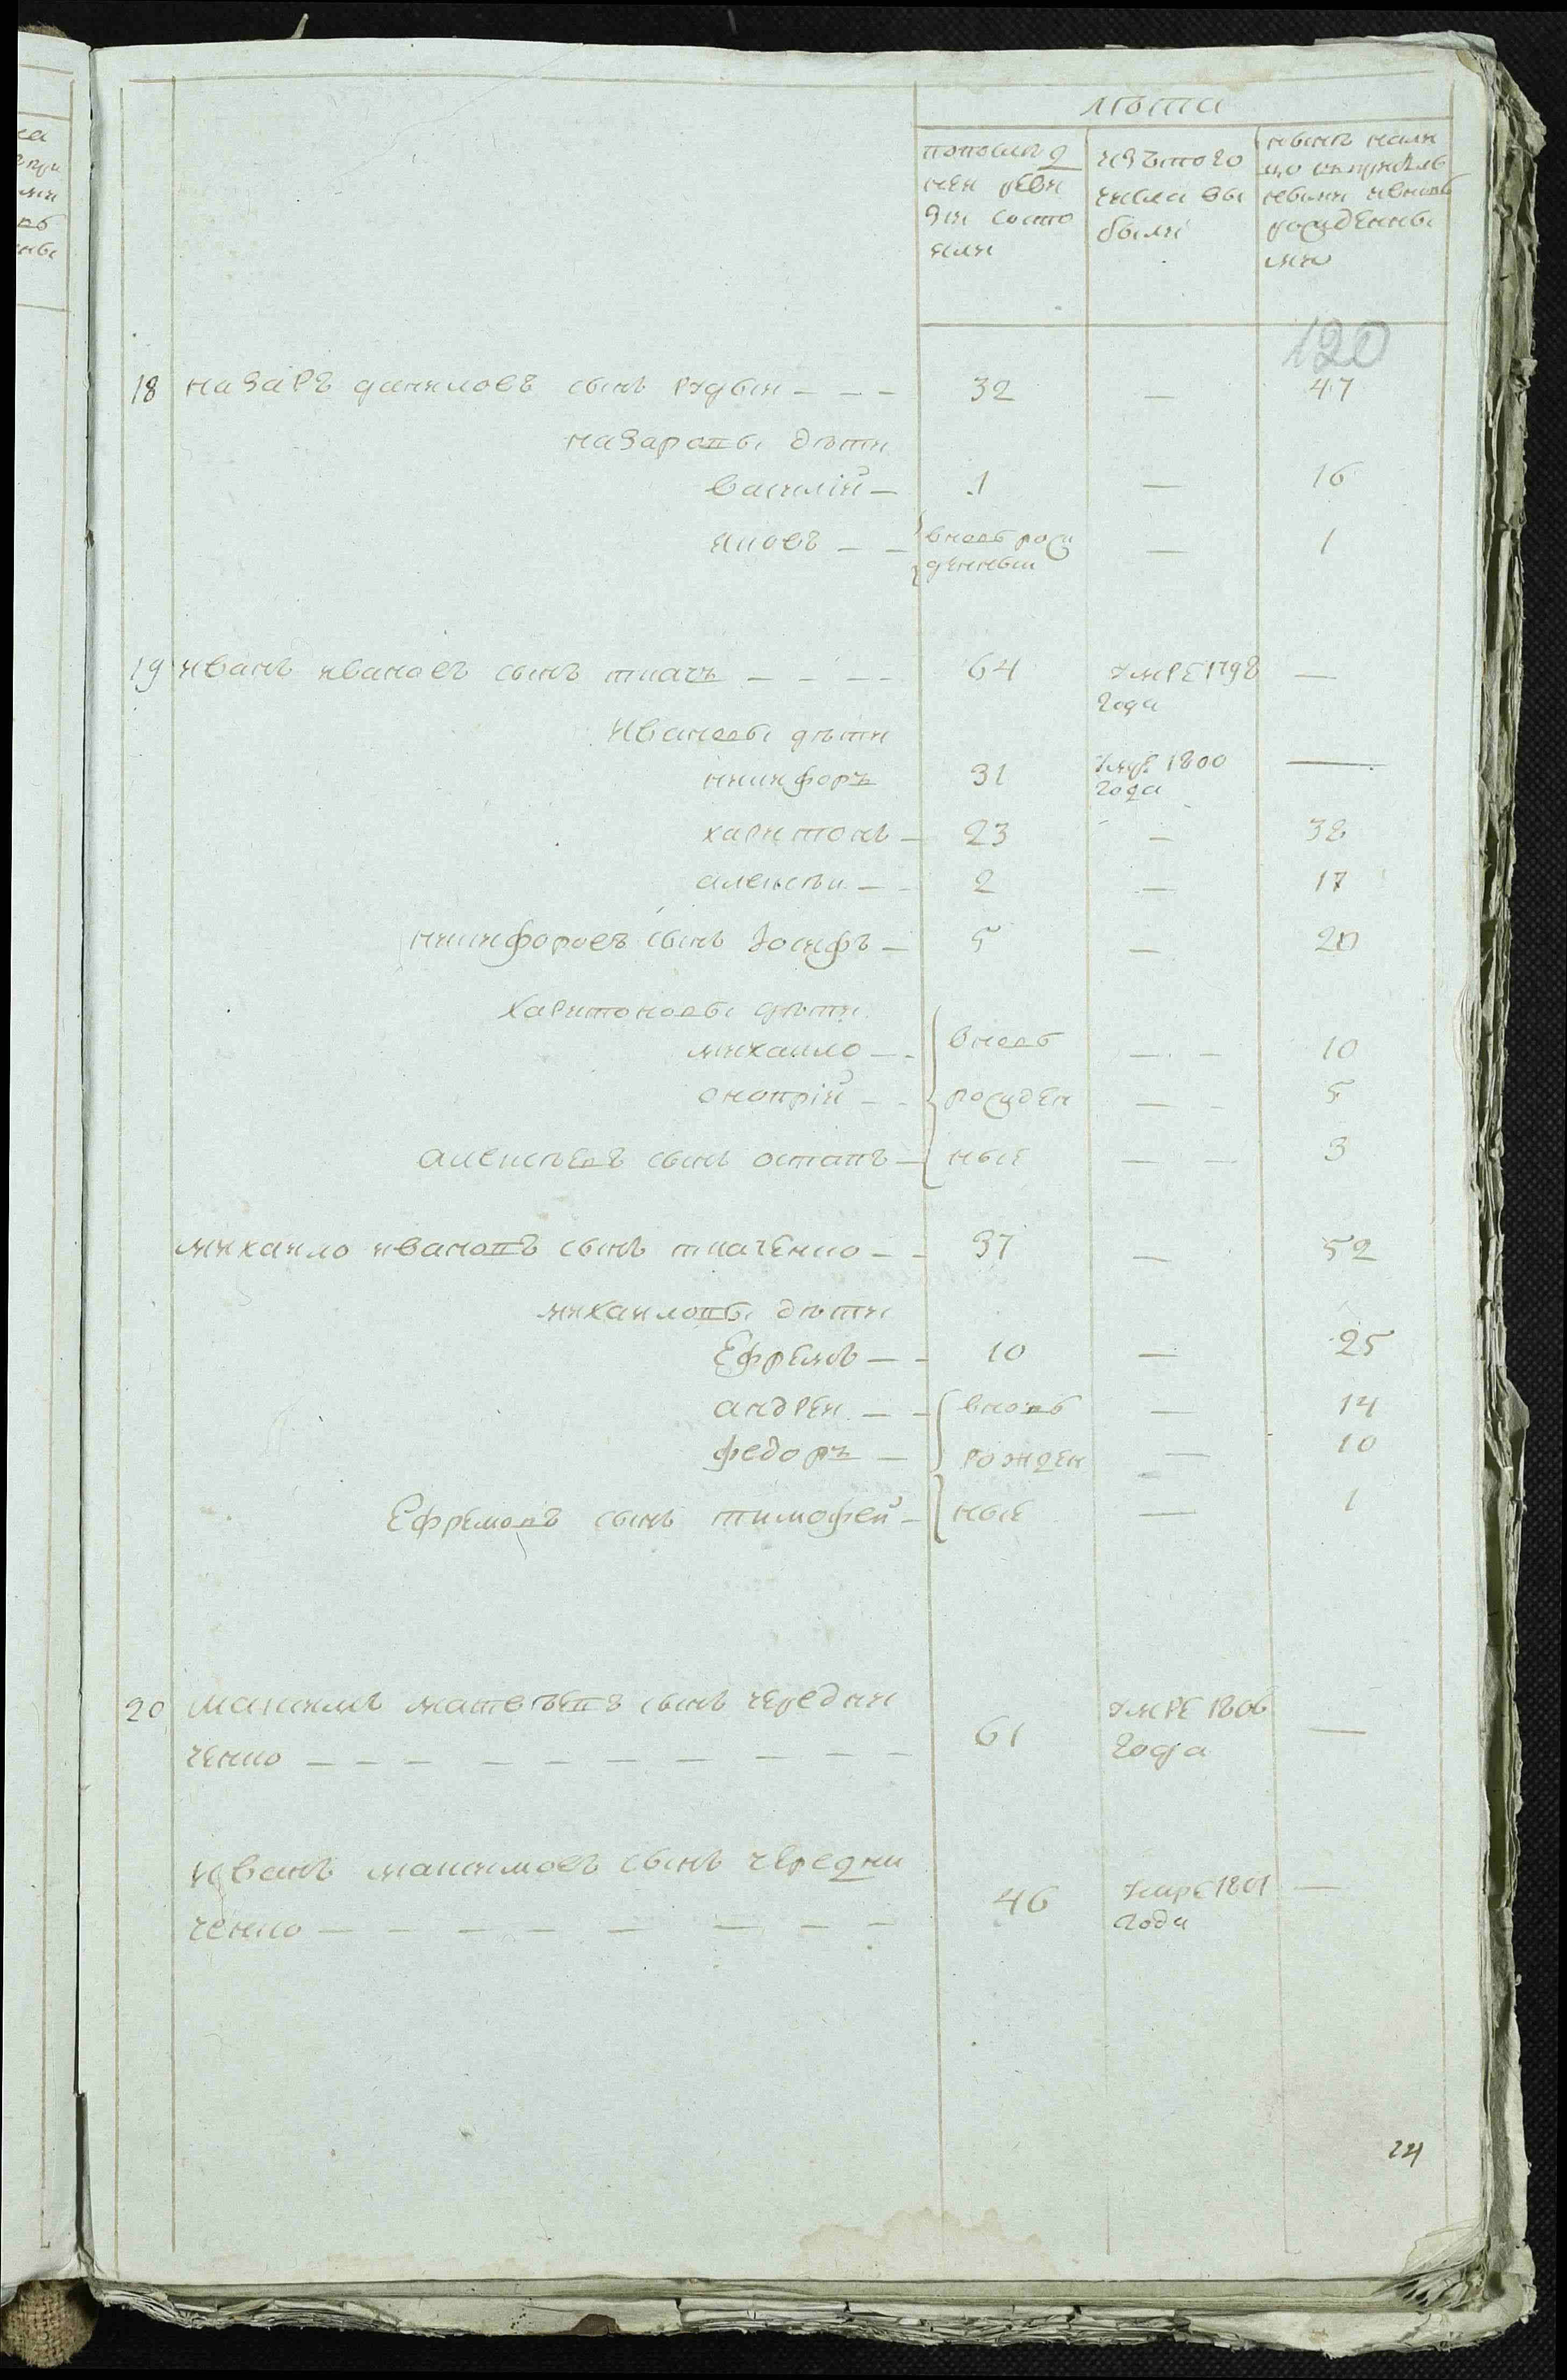 лѣта
попослѣд
ней реви
зіи состо
яли
изътого
числа вы
были
нынѣ нали
цо
рожденны
ми
120
18 назаръ даниловъ сынъ рудыи — — — 32 — 47
назаровы дѣти
василій — 1 — 16
яковъ — — вновь рож
денныи — 1
19 иванъ ивановъ сынъ ткачъ — — — — 64 умре 1798 —
года
Ивановы дѣти
никифоръ 31 умре 1800 —
года
харитонъ — 23 — 38
алексѣи — — 2 — 17
никифоровъ сынъ Іосифъ — 5 — 20
харитоновы дѣти
михаило — — вновь — — 10
онопрій — — рожден — — 5
алексѣевъ сынъ остапъ — ные — — 3
михаило ивановъ сынъ ткаченко — — 37 — 52
михаиловы дѣти
Ефремъ — — 10 — 25
андреи — — вновь — 14
федоръ — рожден — 10
Ефремовъ сынъ тимофей — ные — 1
20 максимъ матвѣевъ сынъ чередни
ченко — — — — — — — — — — 61 умре 1806 —
года
Иванъ максимовъ сынъ чередни
ченко — — — — — — — — 46 умре 1801 —
года
24